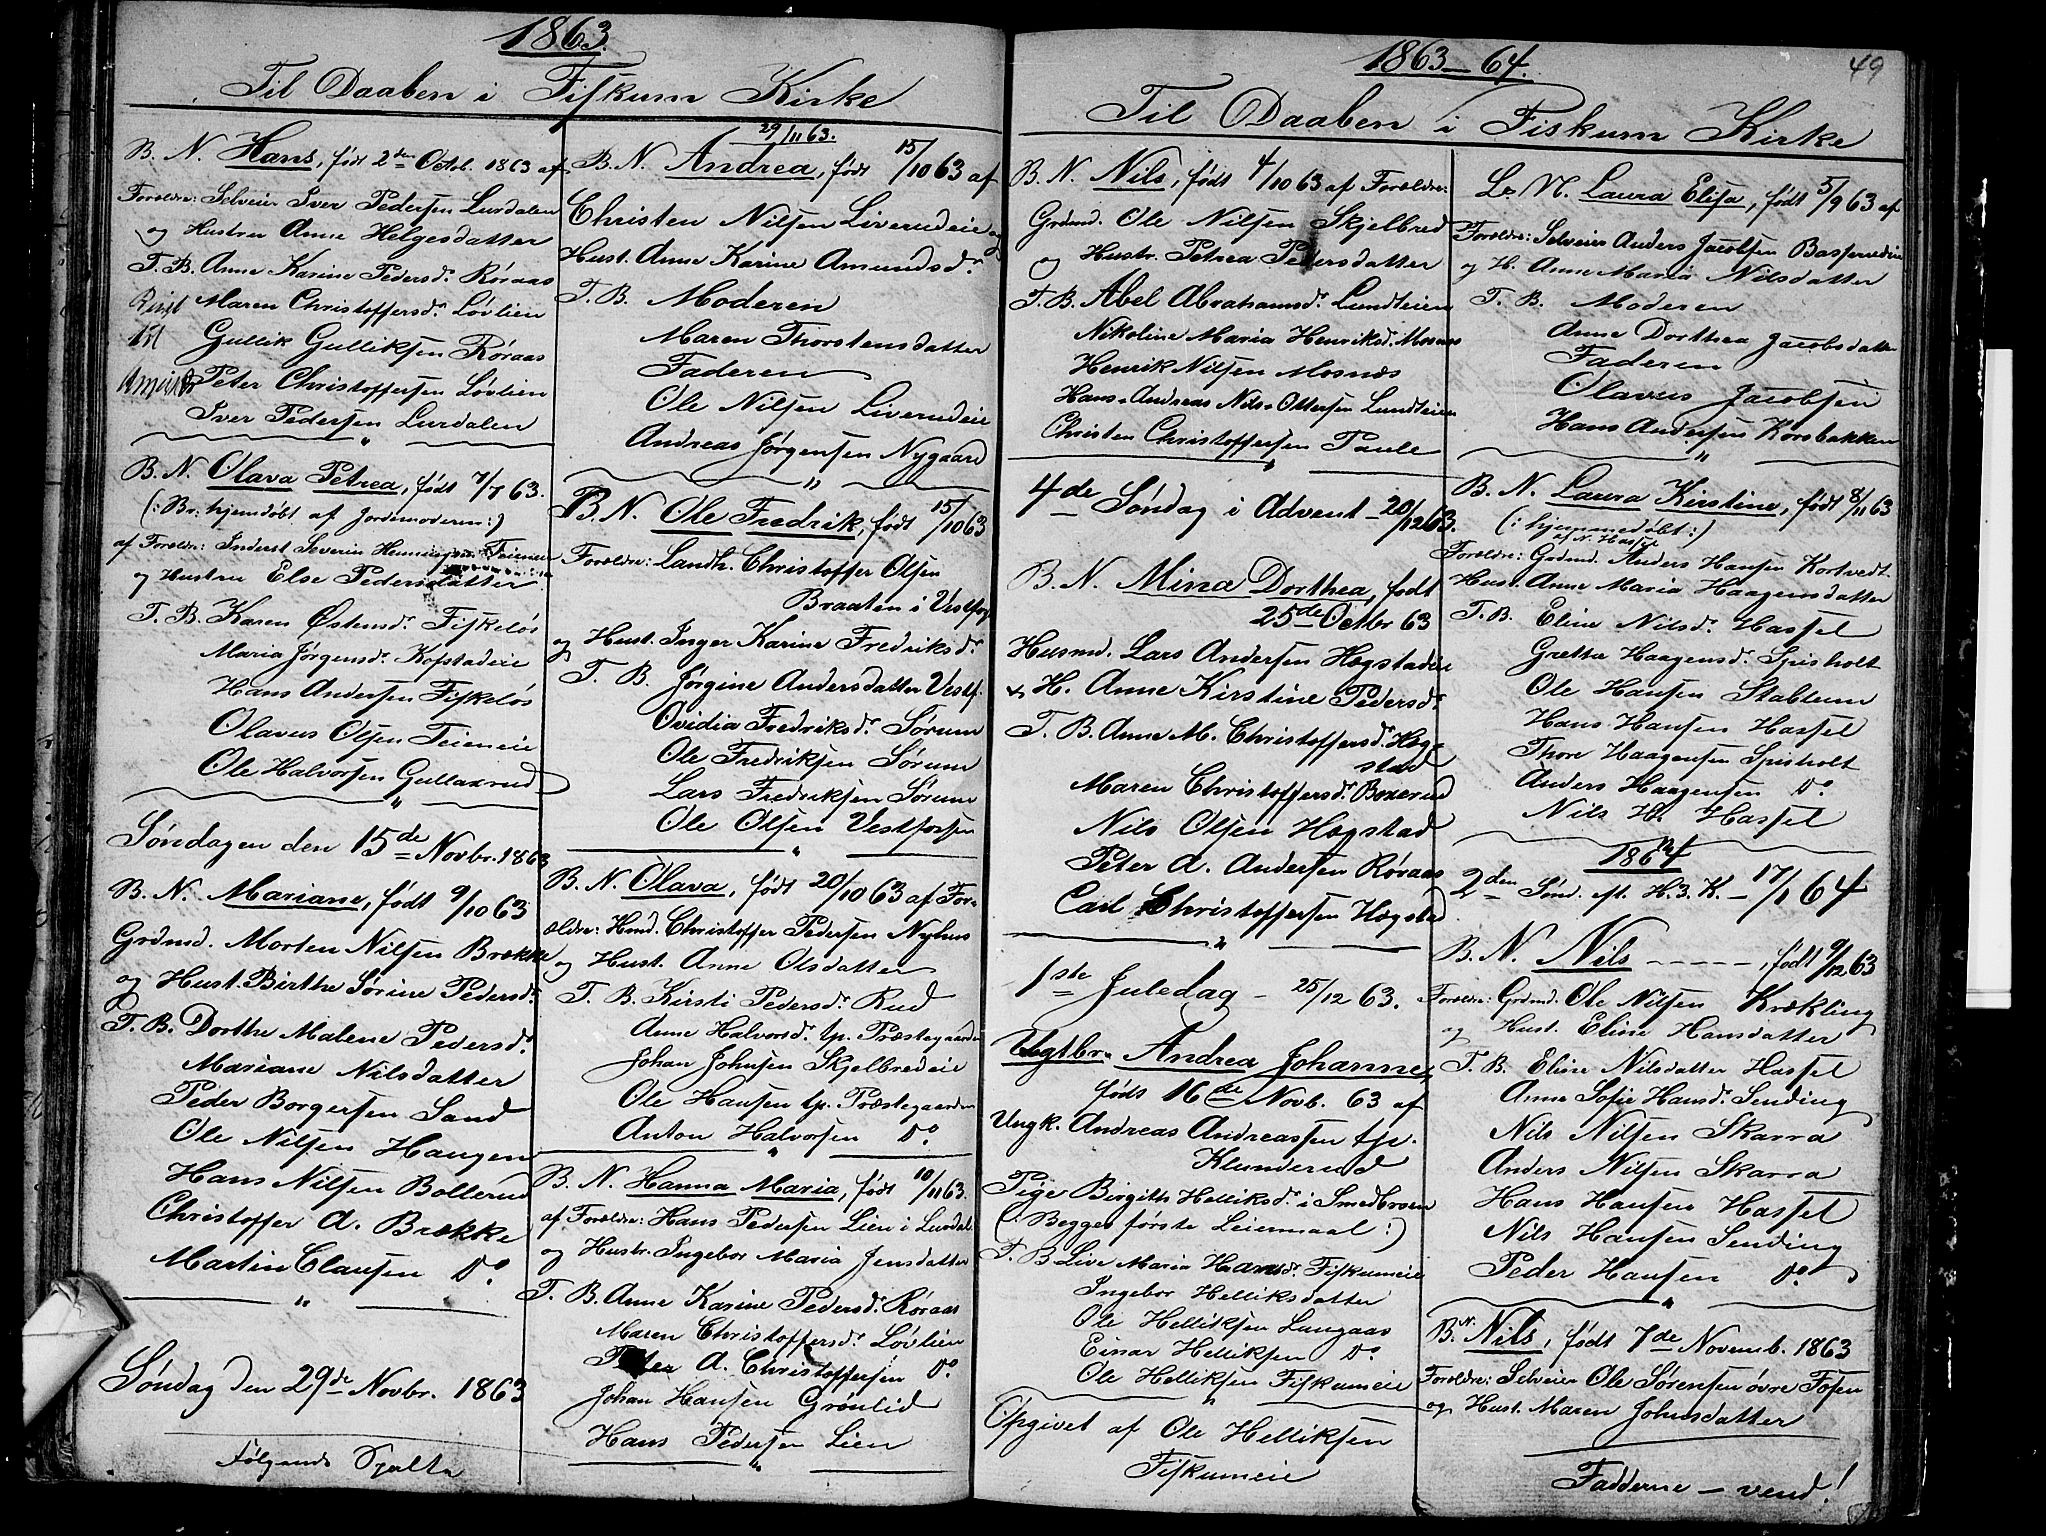 1863.
Til Daaben i Fiskum Kirke
B. N. Hans, født 2den Octob. 1863 af
Forældre: Selveier Iver Pedersen Lurdalen
og Hustru Anne Helgesdatter
T. B. Anne Karine Pedersd. Røraas
Maren Christoffersd. Løvlien
Gullik Gulliksen Røraas
Peter Christoffersen Løvlien
Iver Pedersen Lurdalen
B. N. Olava Petrea, født 7/7 63.
(: Br: hjemdøbt af Jordemoderen:)
af Forældre: Inderst Severin Henningsen Teieneie
og Hustru Else Pedersdatter
T. B. Karen Østensd. Fiskeløs
Maria Jørgensd. Kopstadeie
Hans Andersen Fiskeløs
Olavus Olsen Teieneie
Ole Halvorsen Gullaxrud
Søndagen den 15de Novbr. 1863
B. N. Mariane, født 9/10 63
Grdmd. Morten Nilsen Brække
og Hust. Birthe Sørine Pedersd.
T. B. Dorthe Malene Pedersd.
Mariane Nilsdatter
Peder Borgersen Sand
Ole Nilsen Haugen
Hans Nilsen Bollerud
Christoffer A. Brække
Martin Clausen Do.
Søndag den 29de Novbr. 1863
Følgende Spalte
29/11 63.
B. N. Andrea, født 15/10 63 af
Christen Nilsen Liverudeie og
Hust. Anne Karine Amundsd.
T. B. Moderen
Maren Thorstensdatter
Faderen
Ole Nilsen Liverudeie
Andreas Jørgensen Nygaard
B. N. Ole Fredrik, født 15/10 63
Forældre: Landh. Christoffer Olsen
Braaten i Vestfos
og Hust. Inger Karine Fredriksd.
T. B. Jørgine Andersdatter Vestf.
Ovidia Fredriksd. Sørum
Ole Fredriksen Sørum
Lars Fredriksen Sørum
Ole Olsen Vestfossen
B. N. Olava, født 20/10 63 af For-
ældre: Hmd. Christoffer Pedersen Nyhus
og Hust. Anne Olsdatter
T. B. Kirsti Pedersd. Rud
Anne Halvorsd. tp. Præstegaarden
Johan Johnsen Skjelbredeie
Ole Hansen tp. Præstegaarden
Anton Halvorsen Do.
B. N. Hanna Maria, født 10/11 63.
af Forældre: Hans Pedersen Lien i Lurdal.
og Hustr. Ingebor Maria Jensdatter
T. B. Anne Karine Pedersd. Røraas
Maren Christoffersd. Løvlien
Peter A. Christoffersen Do.
Johan Hansen Grønlid
Hans Pedersen Lien
1863—64.
49
Til Daaben i Fiskum Kirke
B. N. Nils, født 4/10 63 af Forældre:
Grdmd. Ole Nilsen Skjelbred
og Hustr. Petrea Pedersdatter
T. B. Abel Abrahamsd. Lundteien
Nikoline Maria Henriksd. Mosnæs
Henrik Nilsen Mosnæs
Hans-Andreas Nils-Ottersen Lundteien
Christen Christoffersen Paule
4de Søndag i Advent - 20/12 63.
B. N. Mina Dorthea, født
25de Octbr 63
Husmd. Lars Andersen Hægstadeie
& H. Anne Kirstine Pedersd.
T. B. Anne M. Christoffersd. Hæg-
stad
Maren Christoffersd. Boxerud
Nils Olsen Hægstad
Peter A. Andersen Røraas
Carl Christoffersen Hægstad
1ste Juledag - 25/12 63.
Uægtbr. Andrea Johanne,
født 16de Novb. 63 af
Ungk. Andreas Andreassen tje.
Klunderud
Pige Birgith Helliksd. i Smedbroen
(: Begges første Leiermaal:)
T. B. Live Maria Hansd. Fiskumeie
Ingebor Helliksdatter
Ole Helliksen Langaas
Einar Helliksen Do.
Ole Helliksen Fiskumeie
Opgivet af Ole Helliksen
Fiskumeie
L. N. Laura Elisa, født 5/9 63 af
Forældre: Selveier Anders Jacobsen Basserudeie
og H. Anne Maria Nilsdatter
T. B. Moderen
Anne Dorthea Jacobsdatter
Faderen
Olavus Jacobsen
Hans Andersen Korsbakken
B. N. Laura Kirstine, født 8/11 63
(: hjemmedøbt:)
af N. Hassel
Forældre: Grdmd. Anders Hansen Kortvedt
Hust. Anne Maria Haagensdatter
T. B. Eline Nilsd. Hassel
Grethe Haagensd. Spisholt
Ole Hansen Stablum
Hans Hansen Hassel
Thore Haagensen Spisholt
Anders Haagensen Do.
Nils H. Hassel
1864
2den Sønd. eft. H. 3. K. - 17/1 64
B. N. Nils - - - - -, født 9/12 63
Forældre: Grdmd. Ole Nilsen Krækling
og Hust. Eline Hansdatter
T. B. Eline Nilsdatter Hassel
Anne Sofie Hansd. Sending
Nils Nilsen Skarra
Anders Nilsen Skarra
Hans Hansen Hassel
Nils Hansen Sending
Peder Hansen Do.
B. N. Nils, født 7de Novemb. 1863
Forældre: Selveier Ole Sørensen øvre Fosen
og Hust. Maren Johnsdatter
Fadderne - vend!